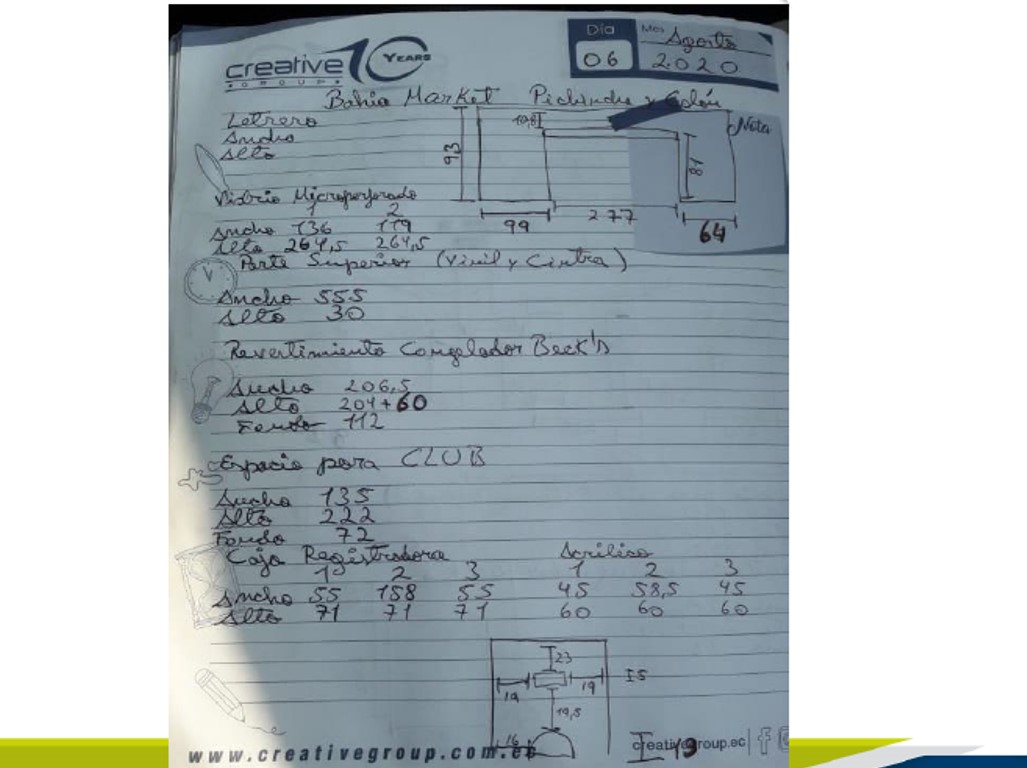 creative GROUP 10 YEARS
Día 06 Mes Agosto 2.020
Bahia Market Pichincha y Colón
Letrero
Ancho
Alto
93
10,8
81
Nota
99
277
64
Vidrio Microperforado
1 2
Ancho 136 119
Alto 264,5 264,5
Parte Superior (Vinil y Cintra)
Ancho 555
Alto 30
Revertimiento Congelador Beck's
Ancho 206,5
Alto 204+60
Fondo 112
Espacio para CLUB
Ancho 135
Alto 222
Fondo 72
Caja Registradora Acrilico
1 2 3 1 2 3
Ancho 55 158 55 45 58,5 45
Alto 71 71 71 60 60 60
23
19
19
I 5
19,5
16
I 19
www.creativegroup.com.ec
creativegroup.ec